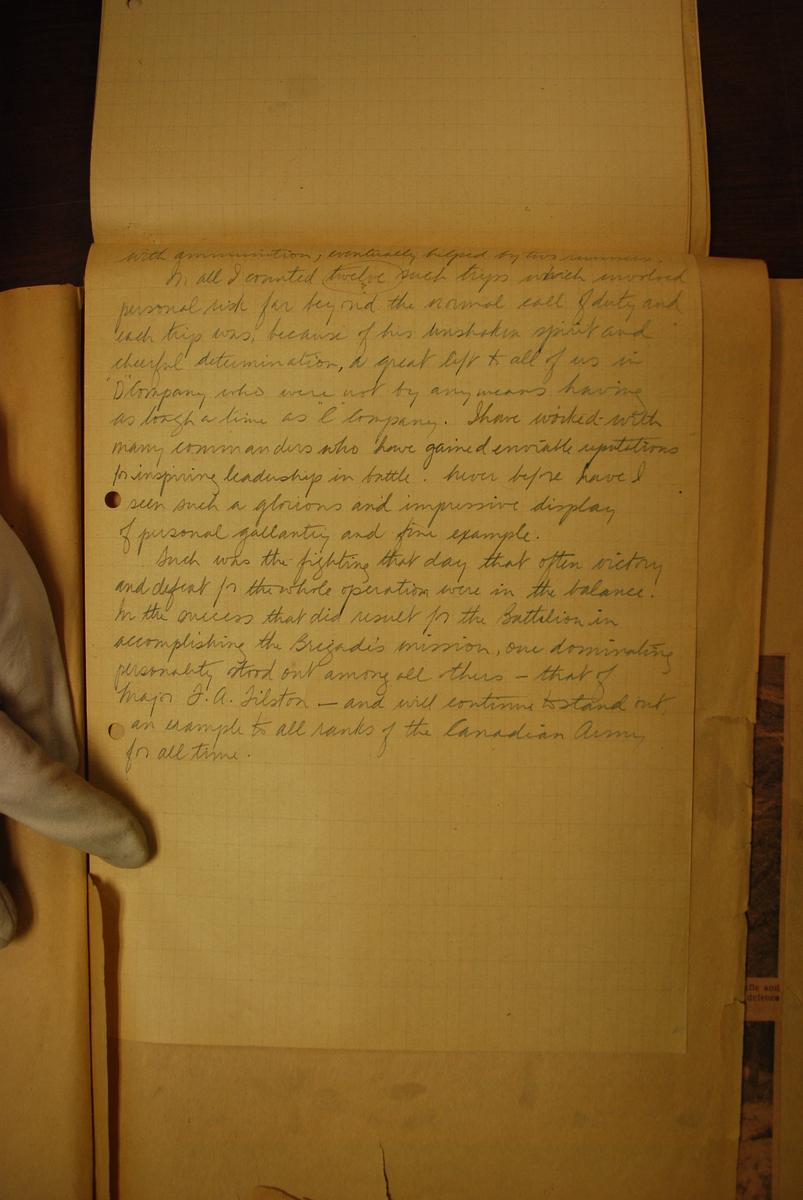 with ammunition, eventually helped by two runners.
In all I counted twelve such trips which involved
personal risk far beyond the normal call of duty and
each trip was, because of his unshaken spirit and
cheerful determination, a great lift to all of us in
"D" Company who were not by any means having
as tough a time as "C" Company. I have worked with
many commanders who have gained enviable reputations
for inspiring leadership in battle. Never before have I
seen such a glorious and impressive display
of personal gallantry and fine example.
Such was the fighting that day that often victory
and defeat for the whole operation were in the balance.
In the success that did result for the Battalion in
accomplishing the Brigade's mission, one dominating
personality stood out among all others – that of
Major F. A. Tilston – and will continue to stand out,
an example to all ranks of the Canadian Army
for all time.
ifle and
defence